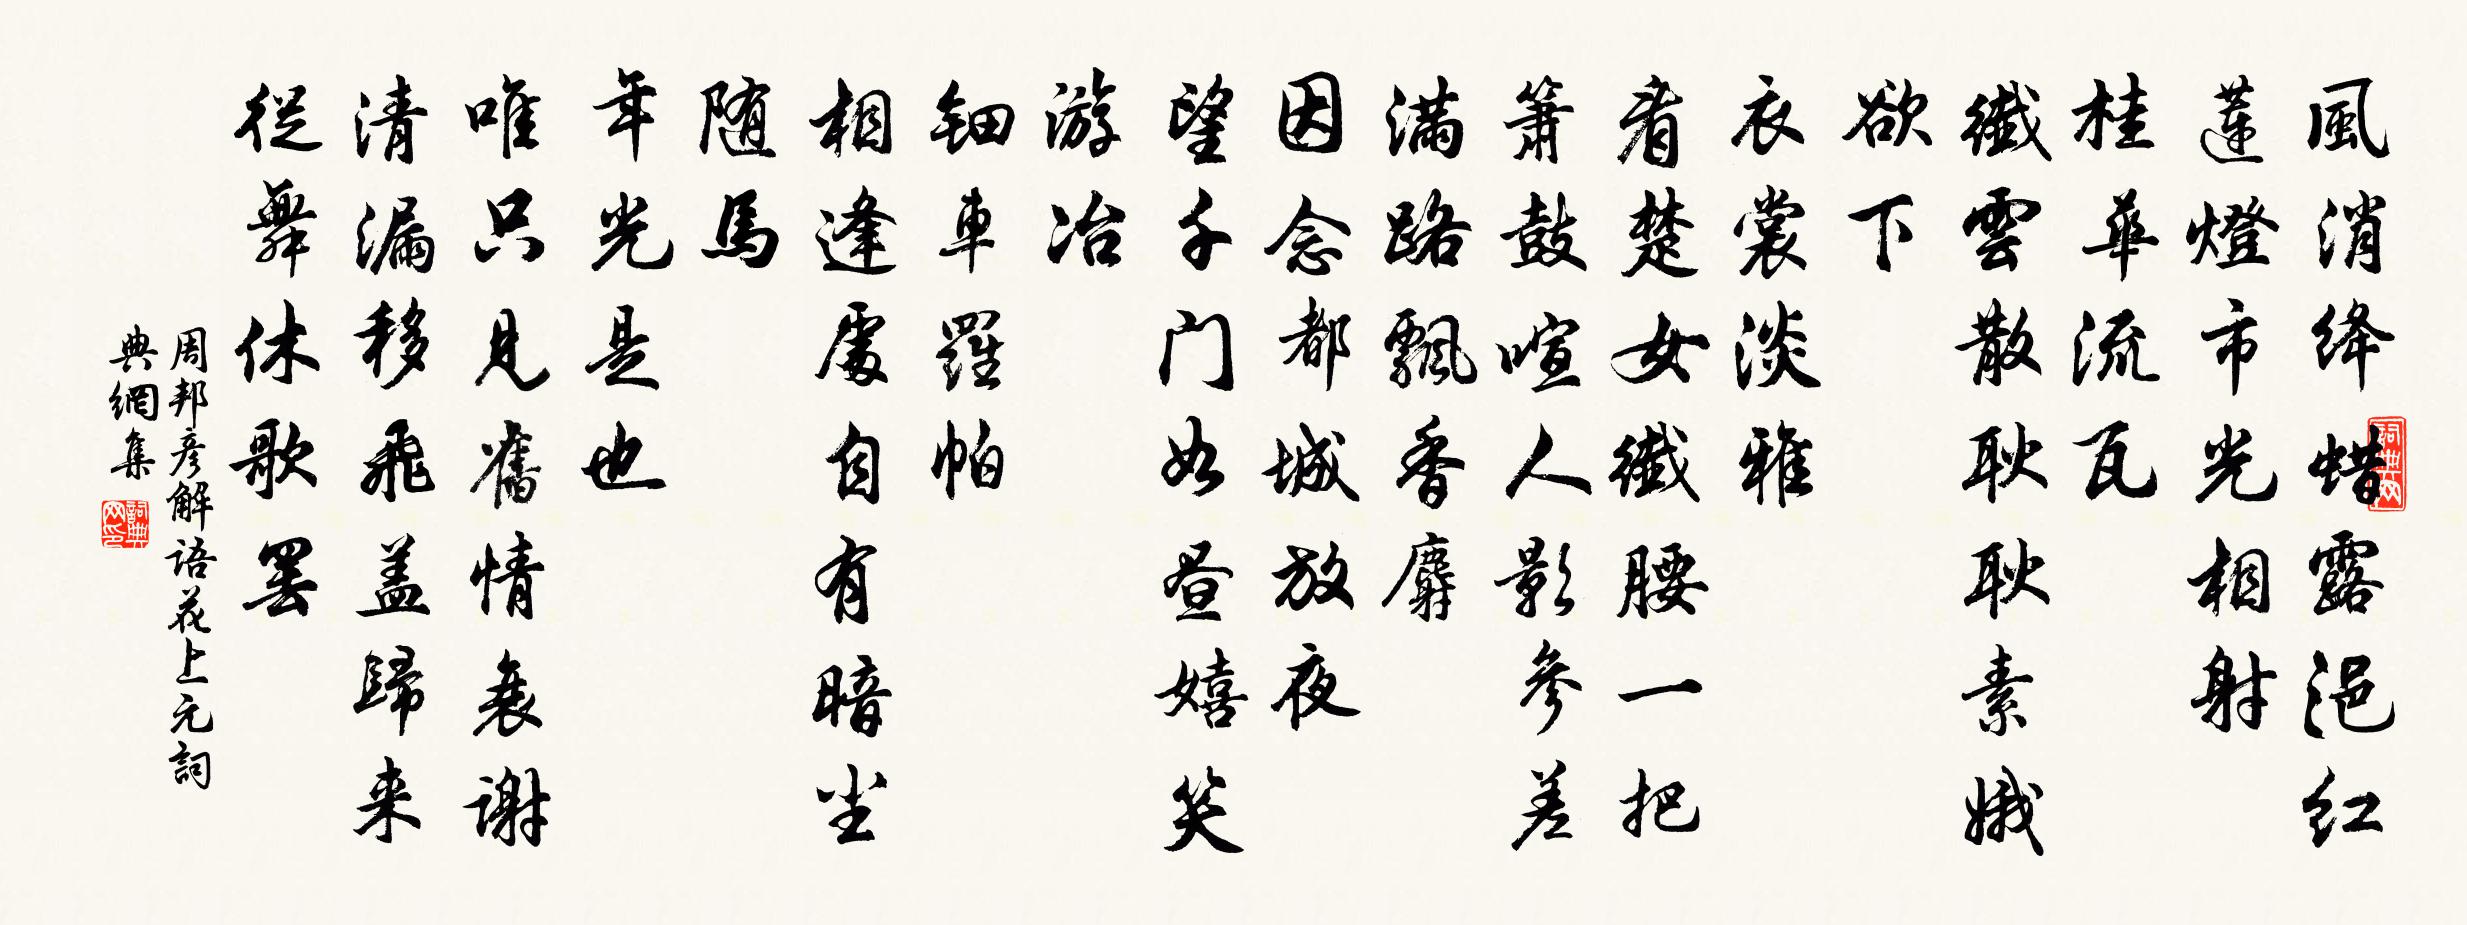 風消绛蜡露浥红
蓮燈市光相射
桂華流瓦
纖雲散耿耿素娥
欲下
衣裳淡雅
看楚女纖腰一把
簫鼓喧人影參差
满路飄香麝
因念都城放夜
望千门如昼嬉笑
游冶
钿車羅帕
相逢處自有暗尘
随馬
年光是也
唯只見舊情衰谢
清漏移飛盖歸来
從舞休歌罢
周邦彦解语花上元詞
典網集